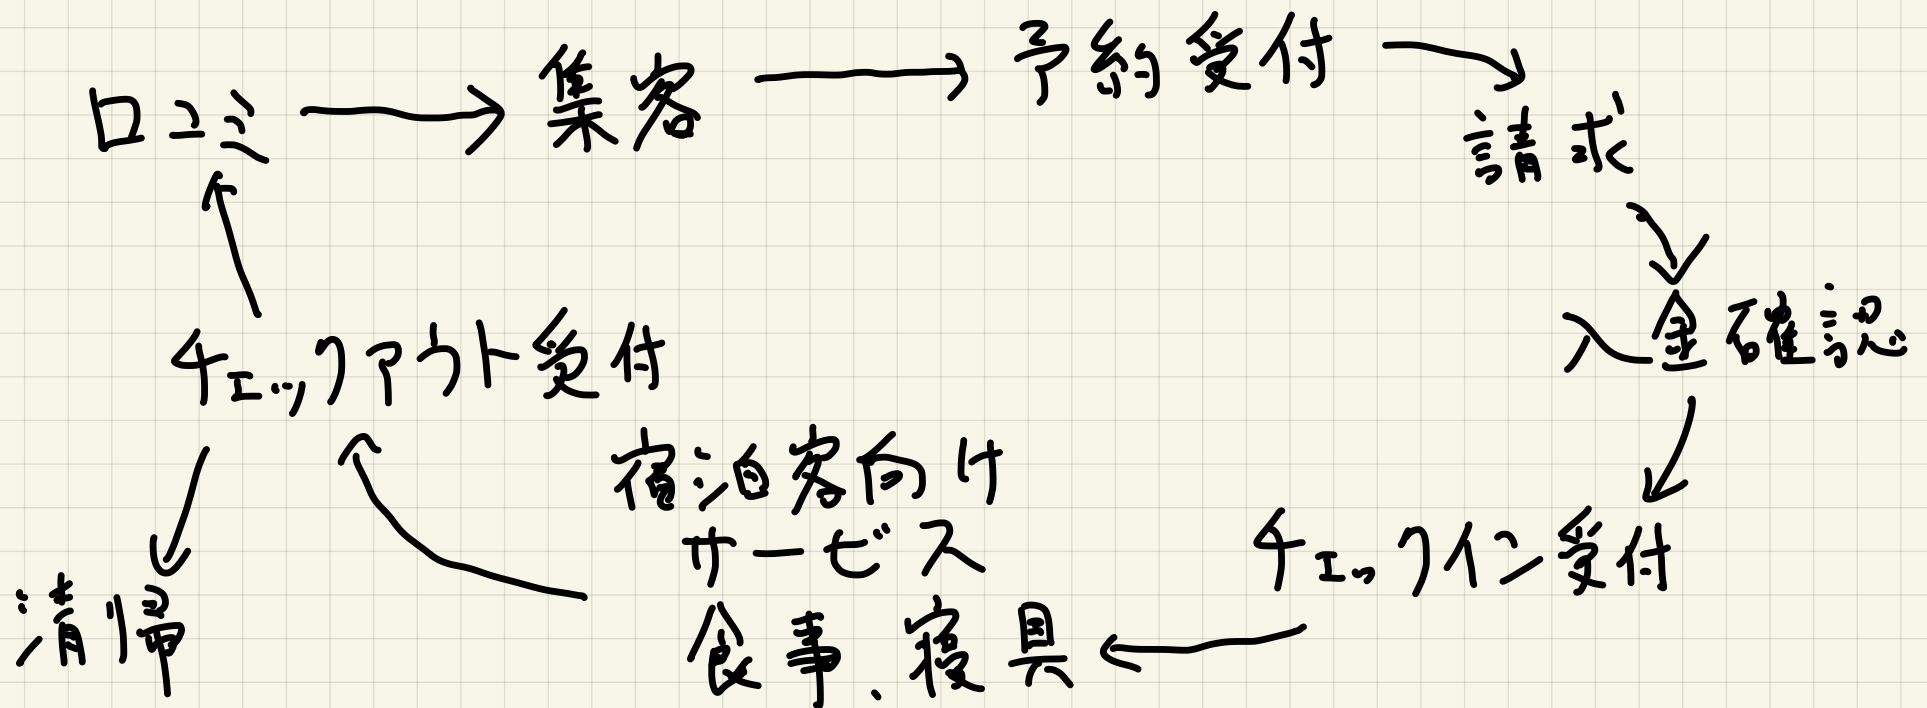 口コミ
集客
予約受付
請求
入金確認
チェックイン受付
宿泊客向け
サービス
食事、寝具
チェックアウト受付
清帰